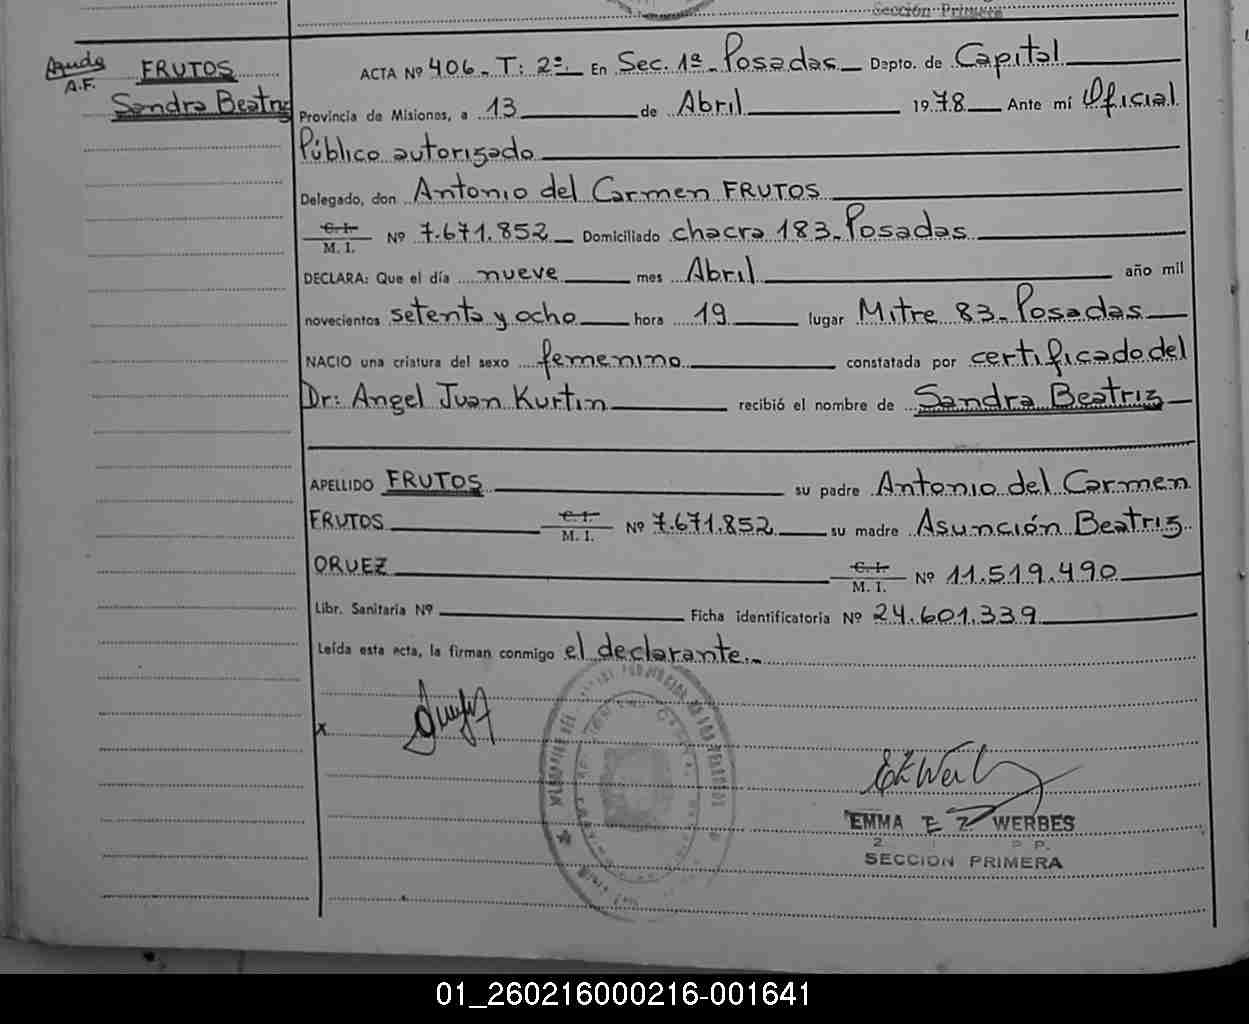 Sección Primera
Ayuda
A.F.
FRUTOS
Sandra Beatriz
ACTA Nº 406_ T: 2º_ En Sec. 1ª_ Posadas_ Depto. de Capital
Provincia de Misiones, a 13 de Abril 1978 Ante mí Oficial
Público autorizado
Delegado, don Antonio del Carmen FRUTOS
C. I.
M. I. Nº 7.671.852_ Domiciliado chacra 183_ Posadas
DECLARA: Que el día nueve mes Abril año mil
novecientos setenta y ocho hora 19 lugar Mitre 83_ Posadas
NACIO una criatura del sexo femenino constatada por certificado del
Dr: Angel Juan Kurtin recibió el nombre de Sandra Beatriz
APELLIDO FRUTOS su padre Antonio del Carmen
FRUTOS C. I. M. I. Nº 7.671.852 su madre Asunción Beatriz
ORUEZ C. I. M. I. Nº 11.519.490
Libr. Sanitaria Nº Ficha identificatoria Nº 24.601.339
Leída esta acta, la firman conmigo el declarante._
x
EMMA E Z WERBES
SECCION PRIMERA
01_260216000216-001641